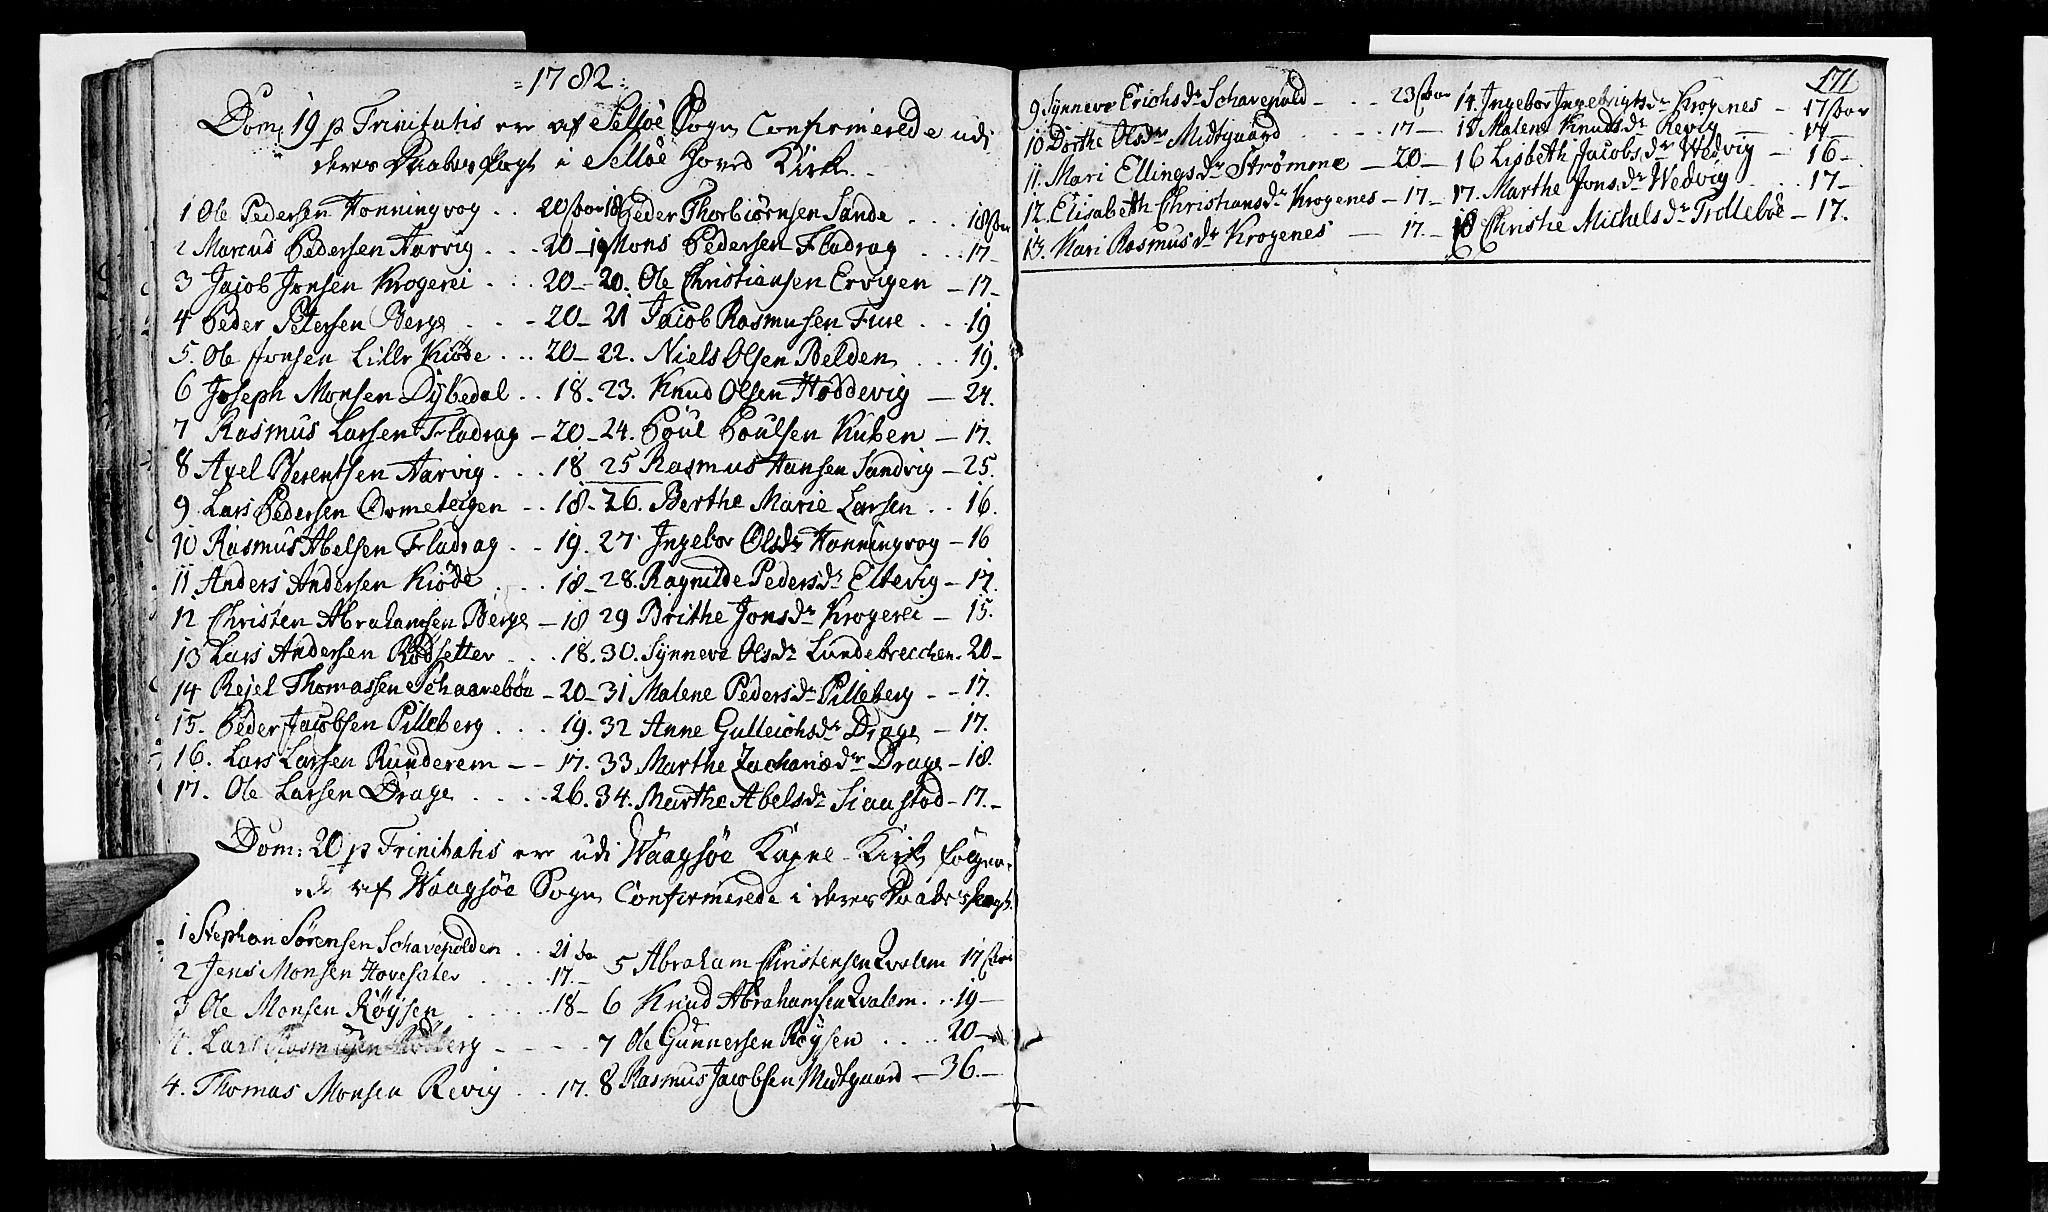 =1782:
Dom: 19 p Trinitatis ere af Selløe Sogn Confirmerede udi
deres Daabes Pagt i Selløe Hoved Kirke.
1 Ole Pedersen Honningvog . . 20 aar
2 Marcus Pedersen Aarvig . . . 20 –
3 Jacob Jonsen Krogerei . . . 20 –
4 Peder Petersen Berge . . - 20 –
5. Ole Jonsen Lille Kiøde . . . 20 –
6 Joseph Monsen Dÿbedal . . 18.
7 Rasmus Larsen Fladrag – 20 –
8 Axel Berentsen Aarvig . . . 18
9. Lars Pedersen Ovmeteigen - - 18 –
10 Rasmus Abelsen Fladrag . . 19.
11 Anders Andersen Kiøde . . . 18 –
12 Christen Abrahamsen Berge – 18
13 Lars Andersen Rødsetter . . . 18.
14 Rejel Thomassen Schaarebøe – 20 –
15. Peder Jacobsen Pilleberg . . . 19.
16. Lars Larsen Runderem – - 17.
17. Ole Larsen Drage . . . . 26.
18 Peder Thorbiørnsen Sande . . . 18 aar
19 Mons Pedersen Fladrag . . . 17 –
20. Ole Christiansen Ervigen – 17 –
21 Jacob Rasmusen Fure . . . 19
22. Niels Olsen Belden . . . 19.
23. Knud Olsen Hoddevig – 24.
24. Poul Poulsen Kuben – 17.
25 Rasmus Hansen Sandvig – 25.
26. Berthe Marie Larsen . . 16.
27. Ingebor Olsdr Honningvog – 16
28. Ragnilde Pedersdr Eltevig – 17.
29 Brithe Jonsdr Krogerei – 15.
30. Sÿnneve Olsdr Lundebrecchen . 20 –
31 Malene Pedersdr Pilleberg - - 17.
32 Anne Gulleichsdr Drage – 17.
33 Marthe Zachariædr Drage – 18.
34. Marthe Abelsdr Siaastad – 17. –
Dom: 20 p Trinitatis ere udi Waagsøe Kirk følgen-
-de af Waagsøe Sogn Confirmerede i deres Daabes pagt.
1 Stephan Sørensen Schavepolden . . 21 aar
2 Jens Monsen Hovesater . . . . 17. –
3 Ole Monsen Røÿsen . . . . . 18 –
4. Lars Rasmusen - - - -
4. Thomas Monsen Revig . . . 17.
5 Abraham Christensen Qvalem 17 aar
6 Knud Abrahamsen Qvalem . . 19 –
7 Ole Gunnersen Røÿsen . . . . 20 –
8 Rasmus Jacobsen Midtgaard – 36. –
171
9 Sÿnneve Erichsdr Schavepold - . . 23 aar
10 Dorthe Olsdr Midtgaard . . . . 17 –
11. Mari Ellingsdr Strømme – 20 –
12. Elisabeth Christiansdr Krogenes – 17 –
13. Kari Rasmusdr Krogenes – 17. –
14. Ingebor Ingebrigtsdr Krogenes – 17 aar
15 Malene Knudsdr Revig – – 17 –
16 Lisbeth Jacobsdr Wedvig – . 16 –
17. Marthe Jonsdr Wedvig . . . 17 –
18 Christie Michelsdr Trolleboe – 17.